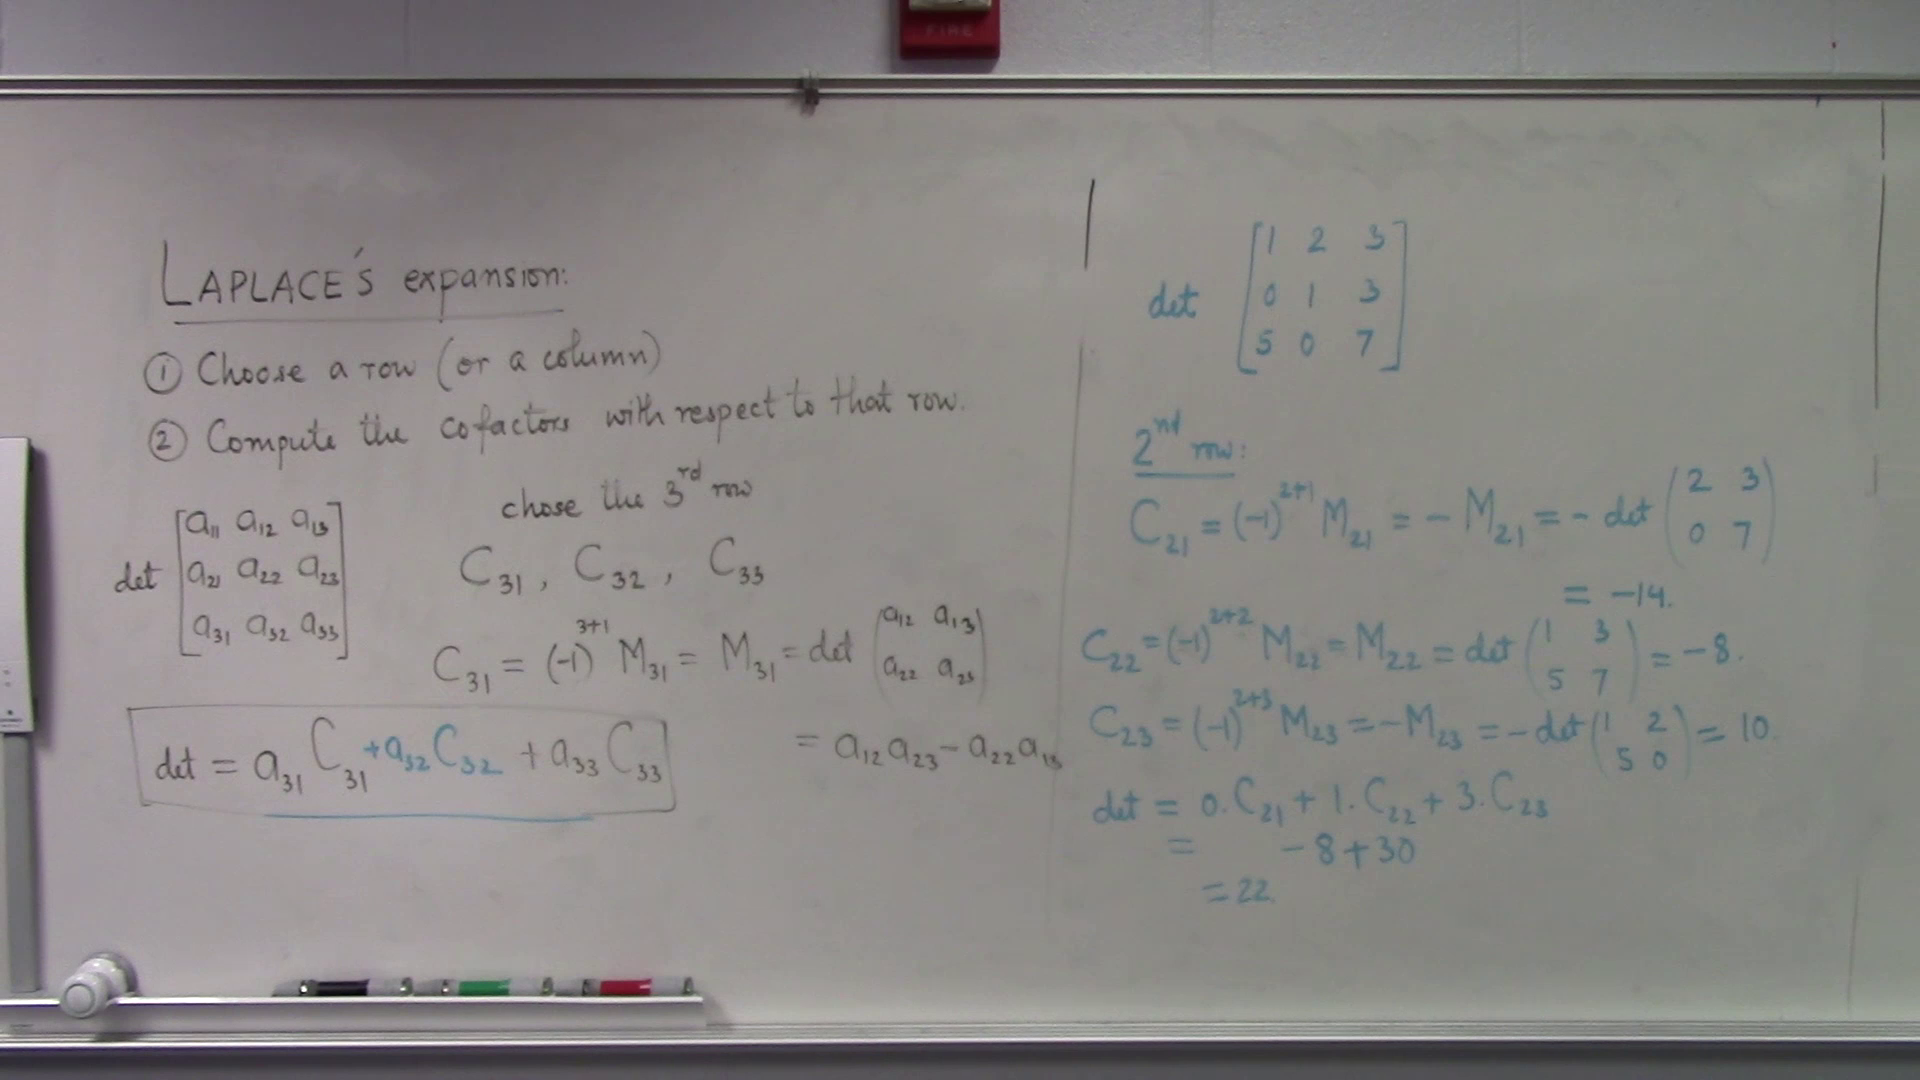 FIRE
LAPLACE'S expansion:
① Choose a row (or a column)
② Compute the cofactors with respect to that row.
chose the 3rd row
det [a11 a12 a13
a21 a22 a23
a31 a32 a33]
C31, C32, C33
C31 = (-1)^3+1 M31 = M31 = det (a12 a13
a22 a23)
= a12 a23 - a22 a13
det = a31 C31 + a32 C32 + a33 C33
det [1 2 3
0 1 3
5 0 7]
2nd row:
C21 = (-1)^2+1 M21 = - M21 = - det (2 3
0 7)
= -14.
C22 = (-1)^2+2 M22 = M22 = det (1 3
5 7) = -8.
C23 = (-1)^2+3 M23 = -M23 = -det (1 2
5 0) = 10.
det = 0. C21 + 1. C22 + 3. C23
= -8+30
= 22.